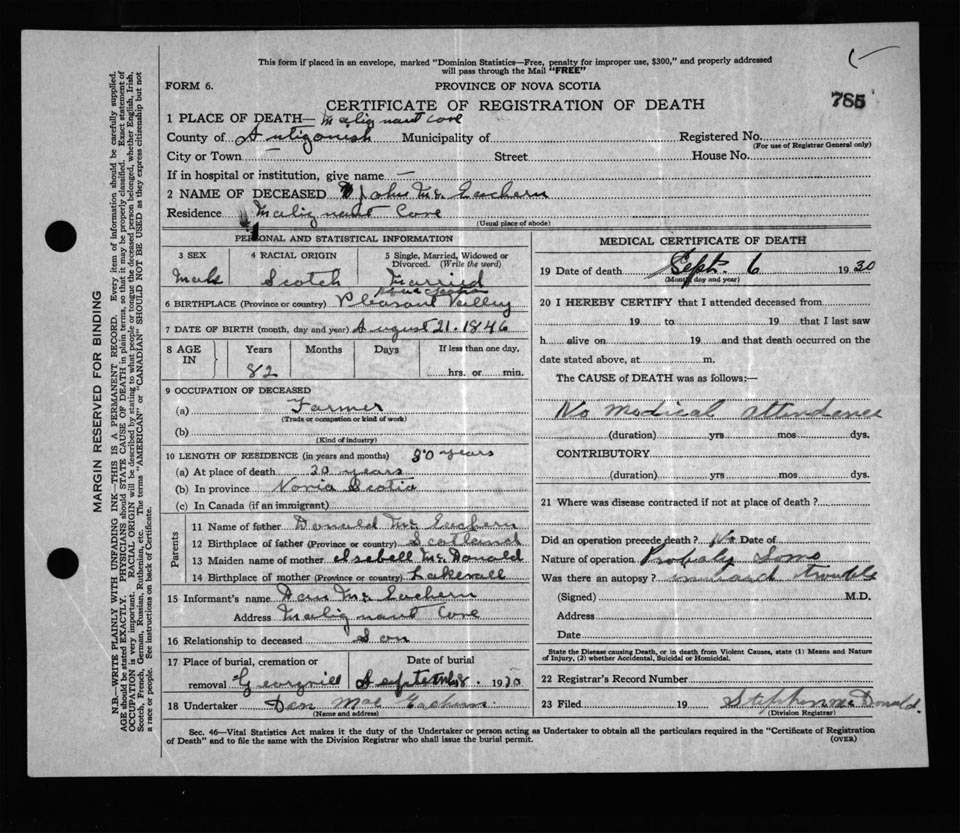 This form if placed in an envelope, marked "Dominion Statistics—Free, penalty for improper use, $300," and properly addressed
will pass through the Mail "FREE"
FORM 6.
PROVINCE OF NOVA SCOTIA
CERTIFICATE OF REGISTRATION OF DEATH
785
1 PLACE OF DEATH— Malignant Cove
County of Antigonish Municipality of Registered No.
(For use of Registrar General only)
City or Town — Street House No.
If in hospital or institution, give name —
2 NAME OF DECEASED John Mc Eachern
Residence Malignant Cove
(Usual place of abode)
PERSONAL AND STATISTICAL INFORMATION
3 SEX 4 RACIAL ORIGIN 5 Single, Married, Widowed or
Divorced. (Write the word)
Male Scotch Married
Nova Scotia
6 BIRTHPLACE (Province or country) Pleasant Valley
7 DATE OF BIRTH (month, day and year) August 21. 1846
8 AGE IN Years Months Days If less than one day,
82 hrs. or min.
9 OCCUPATION OF DECEASED
(a) Farmer
(Trade or occupation or kind of work)
(b)
(Kind of industry)
10 LENGTH OF RESIDENCE (in years and months) 30 years
(a) At place of death 30 years
(b) In province Novia Scotia
(c) In Canada (if an immigrant)
Parents
11 Name of father Donald Mc Eachern
12 Birthplace of father (Province or country) Scotland
13 Maiden name of mother Isebell Mc Donald
14 Birthplace of mother (Province or country) Lakevale
15 Informant's name Dan Mc Eachern
Address Malignant Cove
16 Relationship to deceased Son
17 Place of burial, cremation or Date of burial
removal Georgvill September 8. 1930
18 Undertaker Dan Mac Eachern.
(Name and address)
MEDICAL CERTIFICATE OF DEATH
19 Date of death Sept. 6 1930
(Month, day and year)
20 I HEREBY CERTIFY that I attended deceased from
19 to 19 that I last saw
h alive on 19 and that death occurred on the
date stated above, at m.
The CAUSE of DEATH was as follows:—
No medical attendance
(duration) yrs mos dys.
CONTRIBUTORY
(duration) yrs. mos. dys.
21 Where was disease contracted if not at place of death ?
Did an operation precede death ? No Date of
Nature of operation Probaly Some
Was there an autopsy ? trouble
(Signed) M.D.
Address
Date
State the Disease causing Death, or in death from Violent Causes, state (1) Means and Nature
of Injury, (2) whether Accidental, Suicidal or Homicidal.
22 Registrar's Record Number
23 Filed 19 Stephen Mc Donald.
(Division Registrar)
Sec. 46—Vital Statistics Act makes it the duty of the Undertaker or person acting as Undertaker to obtain all the particulars required in the "Certificate of Registration
of Death" and to file the same with the Division Registrar who shall issue the burial permit. (OVER)
MARGIN RESERVED FOR BINDING
N.B. WRITE PLAINLY WITH UNFADING INK—THIS IS A PERMANENT RECORD. Every item of information should be carefully supplied.
AGE should be stated EXACTLY. PHYSICIANS should STATE CAUSE OF DEATH in plain terms, so that it may be properly classified. Exact statement of
OCCUPATION is very important. RACIAL ORIGIN will be described by stating to what people or tongue the deceased person belonged, whether English, Irish,
Scotch, French, German, Russian, Ruthenian, etc. The terms "AMERICAN" or "CANADIAN" SHOULD NOT BE USED as they express citizenship but not
a race or people. See instructions on back of Certificate.